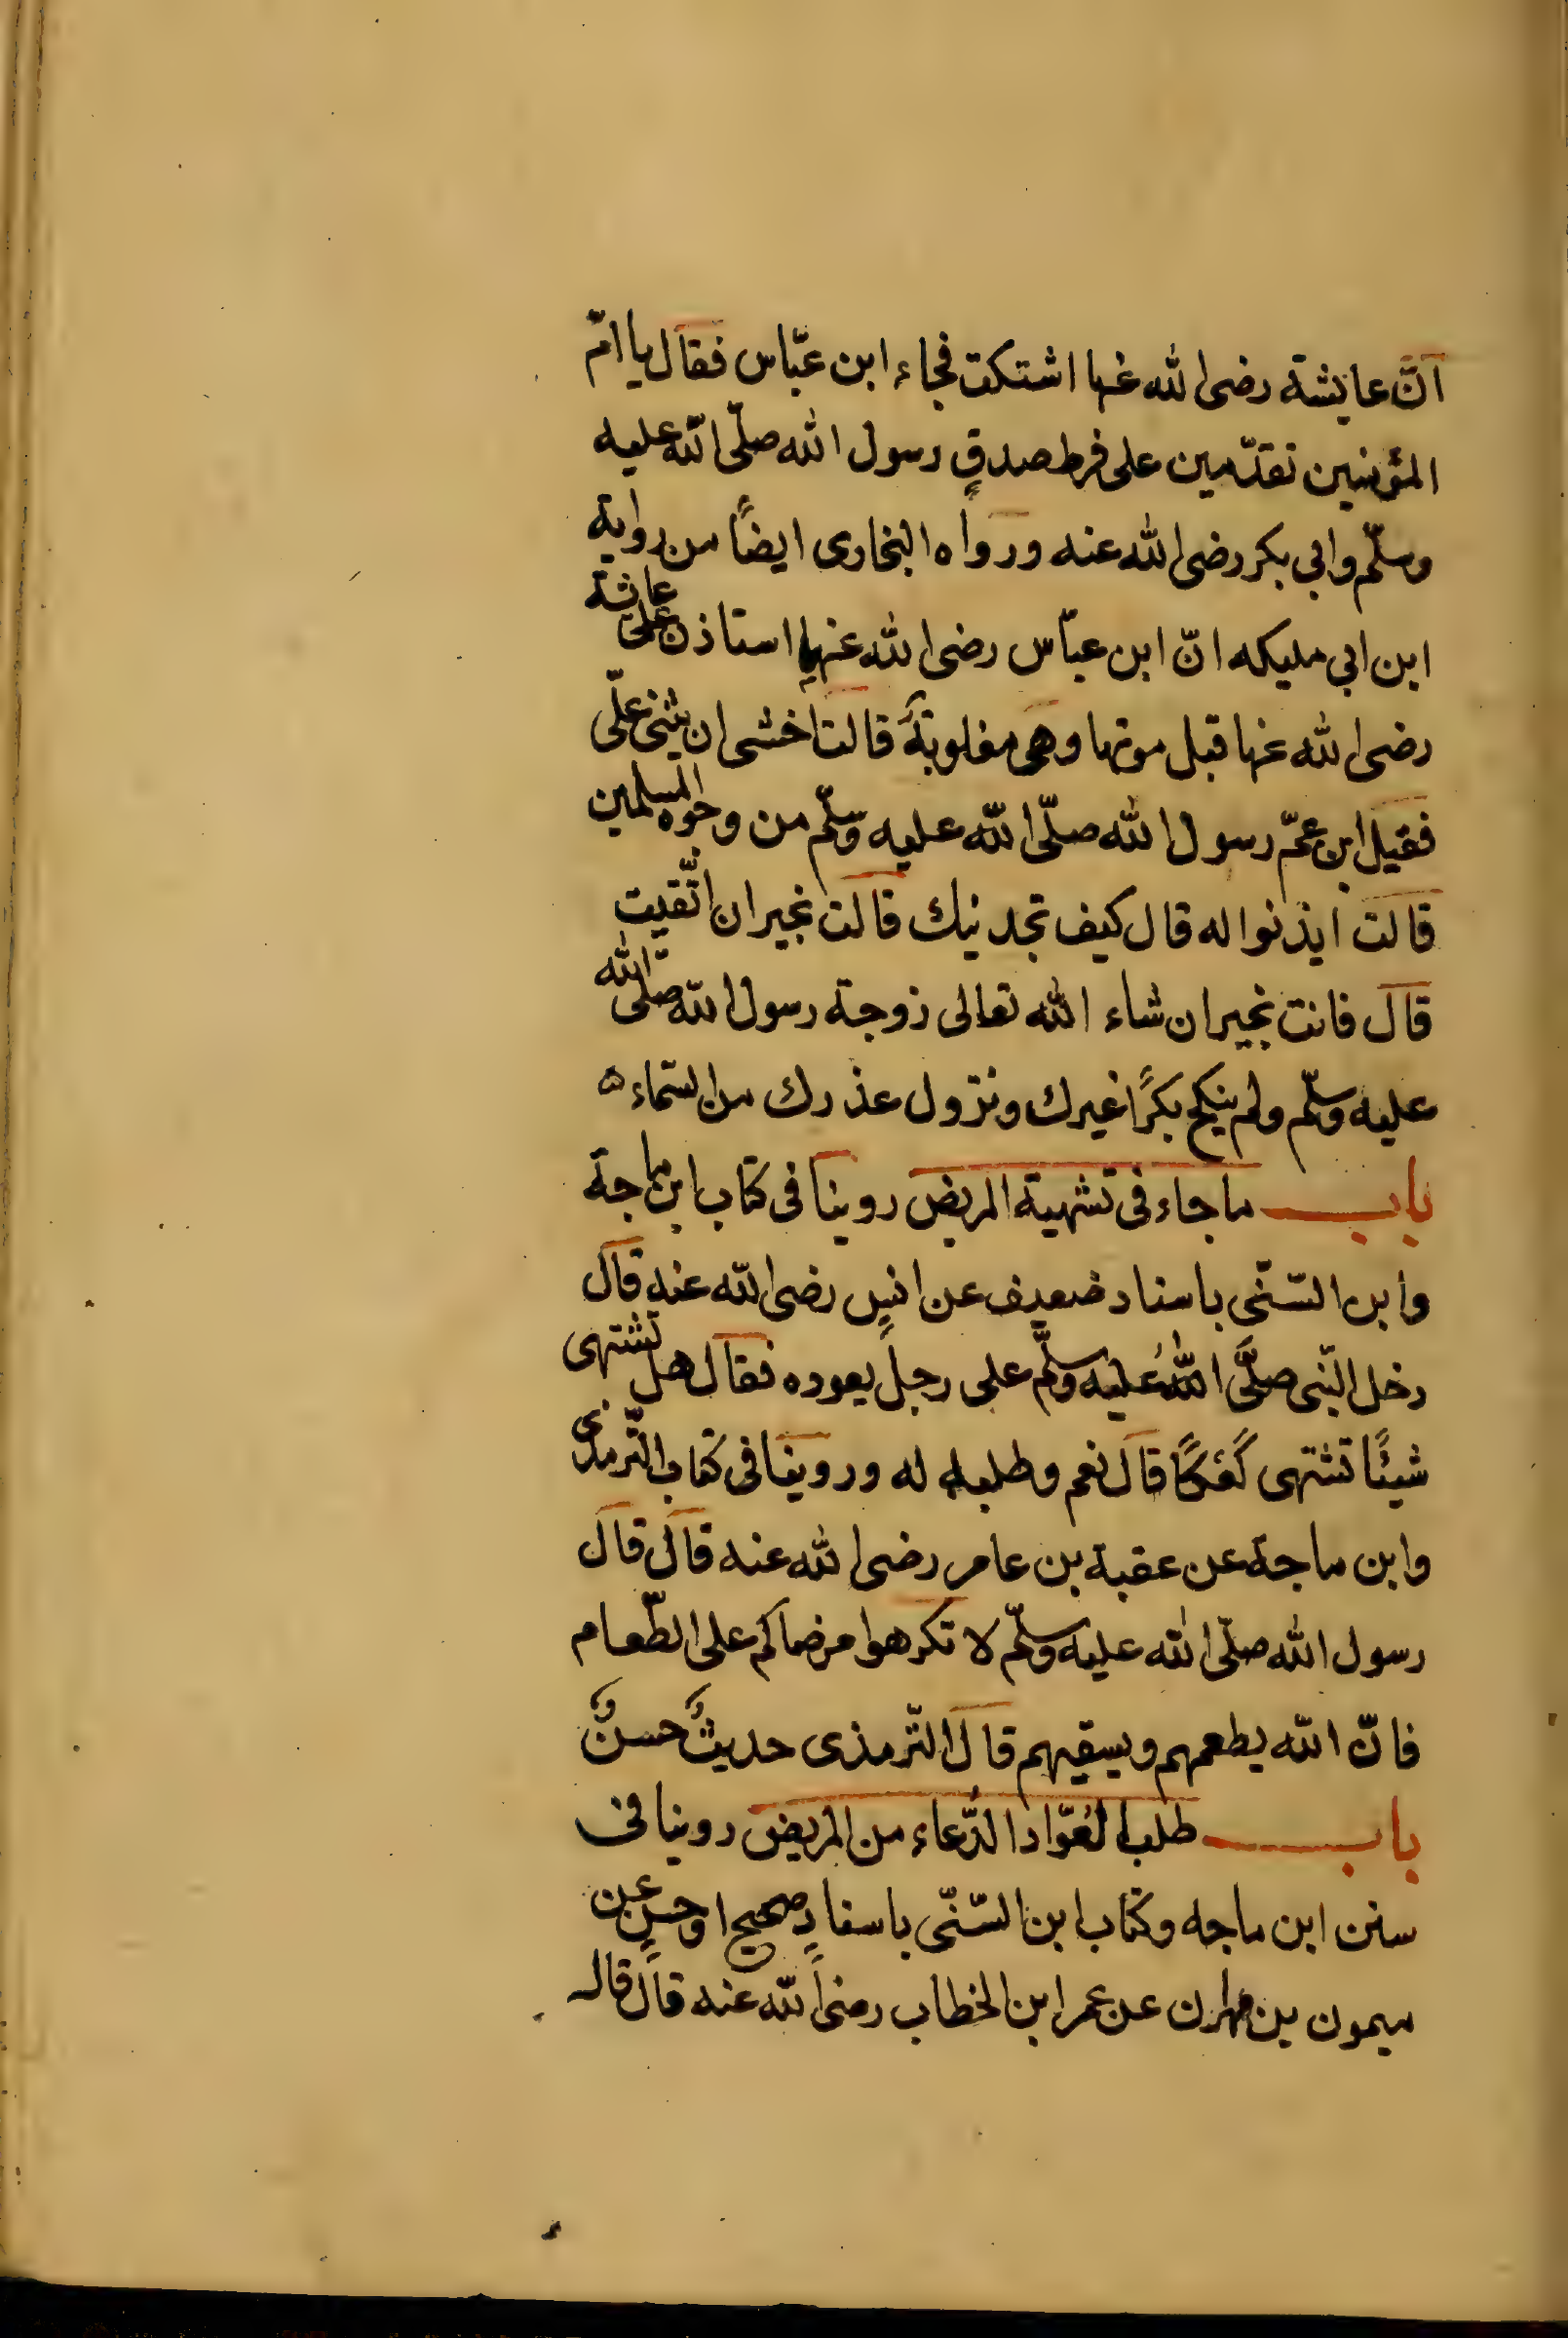 انّ عايشة رضى الله عنها اشتكت فجاء ابن عبّاس فقال يا امّ
المؤمنين تقدّمين على فرط صدقٍ رسول الله صلّى الله عليه
وسلّم وابي بكر رضى الله عنه ورواه البخارى ايضًا من رواية
ابن ابي مليكه انّ ابن عبّاس رضى الله عنهما استاذن على عائشة
رضى الله عنها قبل موتها وهى مغلوبةٌ قالت اخشى ان يثنى علّى
فقيل ابن عمّ رسول الله صلّى الله عليه وسلّم من وجوه المسلمين
قالت ايذنوا له قال كيف تجدنيك قالت بخير ان اتّقيت
قال فانت بخير ان شاء الله تعالى زوجة رسول الله صلّى الله
عليه وسلّم ولم ينكح بكرًا غيرك ونزول عذرك من السّماء ه
باب ما جاء فى تشهية المريض روينا فى كتاب ابن ماجة
وابن السّنّى باسناد ضعيف عن انسٍ رضى الله عنه قال
دخل النّبى صلَّى اللهُ عليه وسلّم على رجلٍ يعوده فقال هل تشتهى
شيئًا تشتهى كَعْكًا قال نعم وطلبه له وروينا فى كتاب التّرمذى
وابن ماجة عن عقبة بن عامر رضى الله عنه قال قال
رسول الله صلّى الله عليه وسلّم لا تكرهوا مرضاكم على الطّعام
فانّ الله يطعمهم ويسقيهم قال التّرمذى حديثٌ حسنٌ
باب طلب العُوّاد الدُّعاء من المريض روينا فى
سنن ابن ماجه وكتاب ابن السّنّى باسنادٍ صحيح او حسنٍ عن
ميمون بن مهران عن عمر ابن الخطاب رضى الله عنه قال قال